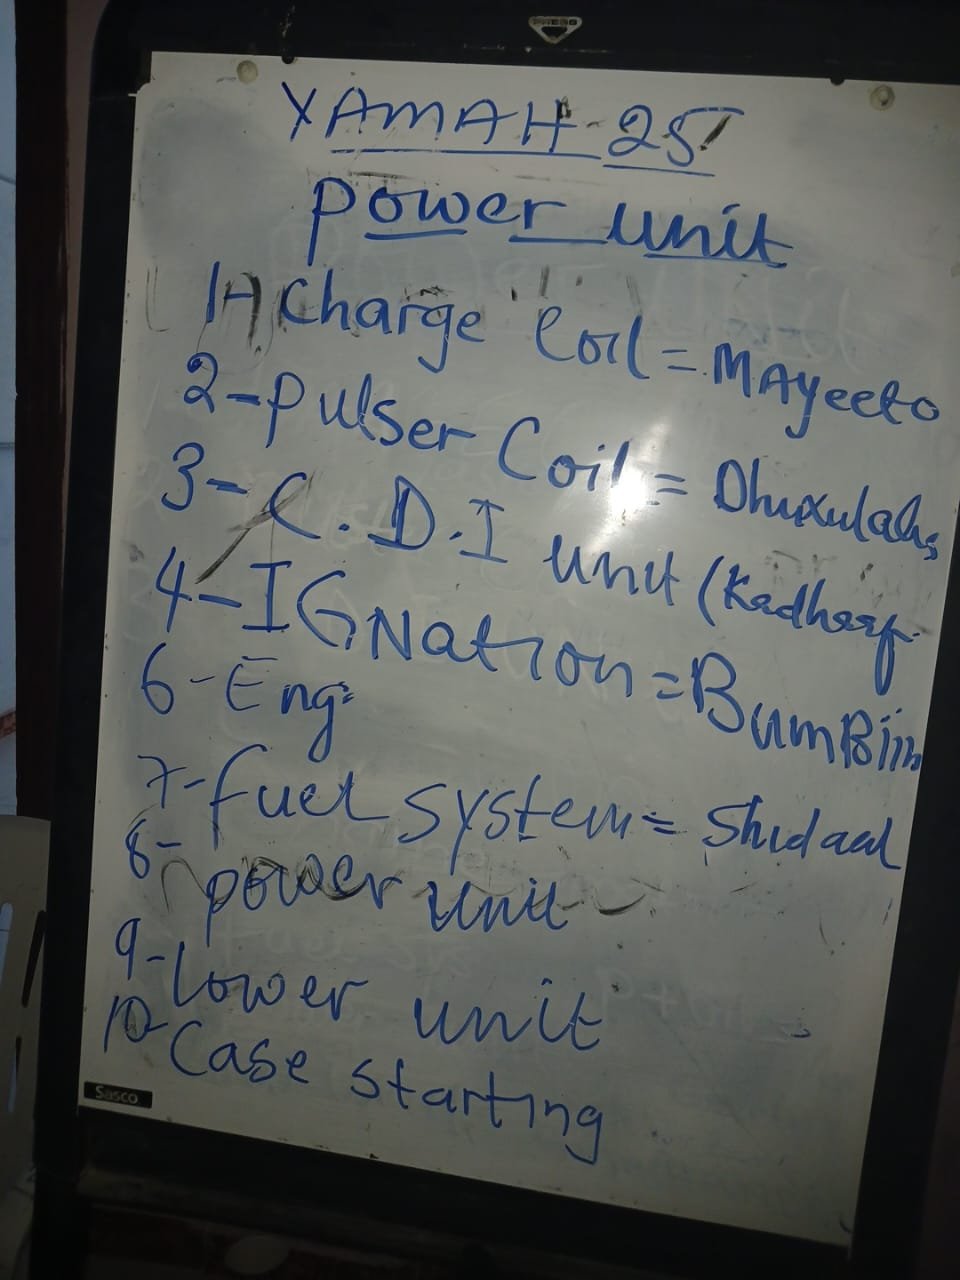 YAMAH-25
power unit
1- Charge Coil = MAyeeto
2- pulser Coil = Dhuxulahs
3- C.D.I unit (Kadhaaf
4- IGNation = BumBiin
6- Eng
7- fuel system = Shidaal
8- power unit
9- lower unit
10- Case starting
Sasco